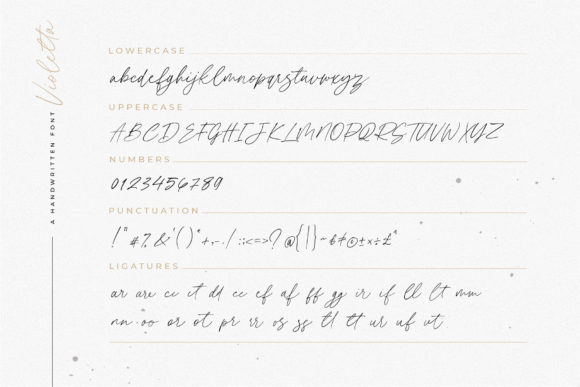 Violetta
A HANDWRITTEN FONT
LOWERCASE
abcdefghijklmnopqrstuvwxyz
UPPERCASE
ABCDEFGHIJKLMNOPQRSTUVWXYZ
NUMBERS
0123456789
PUNCTUATION
!"#%&'()*+,-./:;<=>?@{|}~
LIGATURES
ar are cc ct dd ee ef af ff gg ir if ll lt mm
nn oo or ot pr rr os ss tl tt ur uf ut